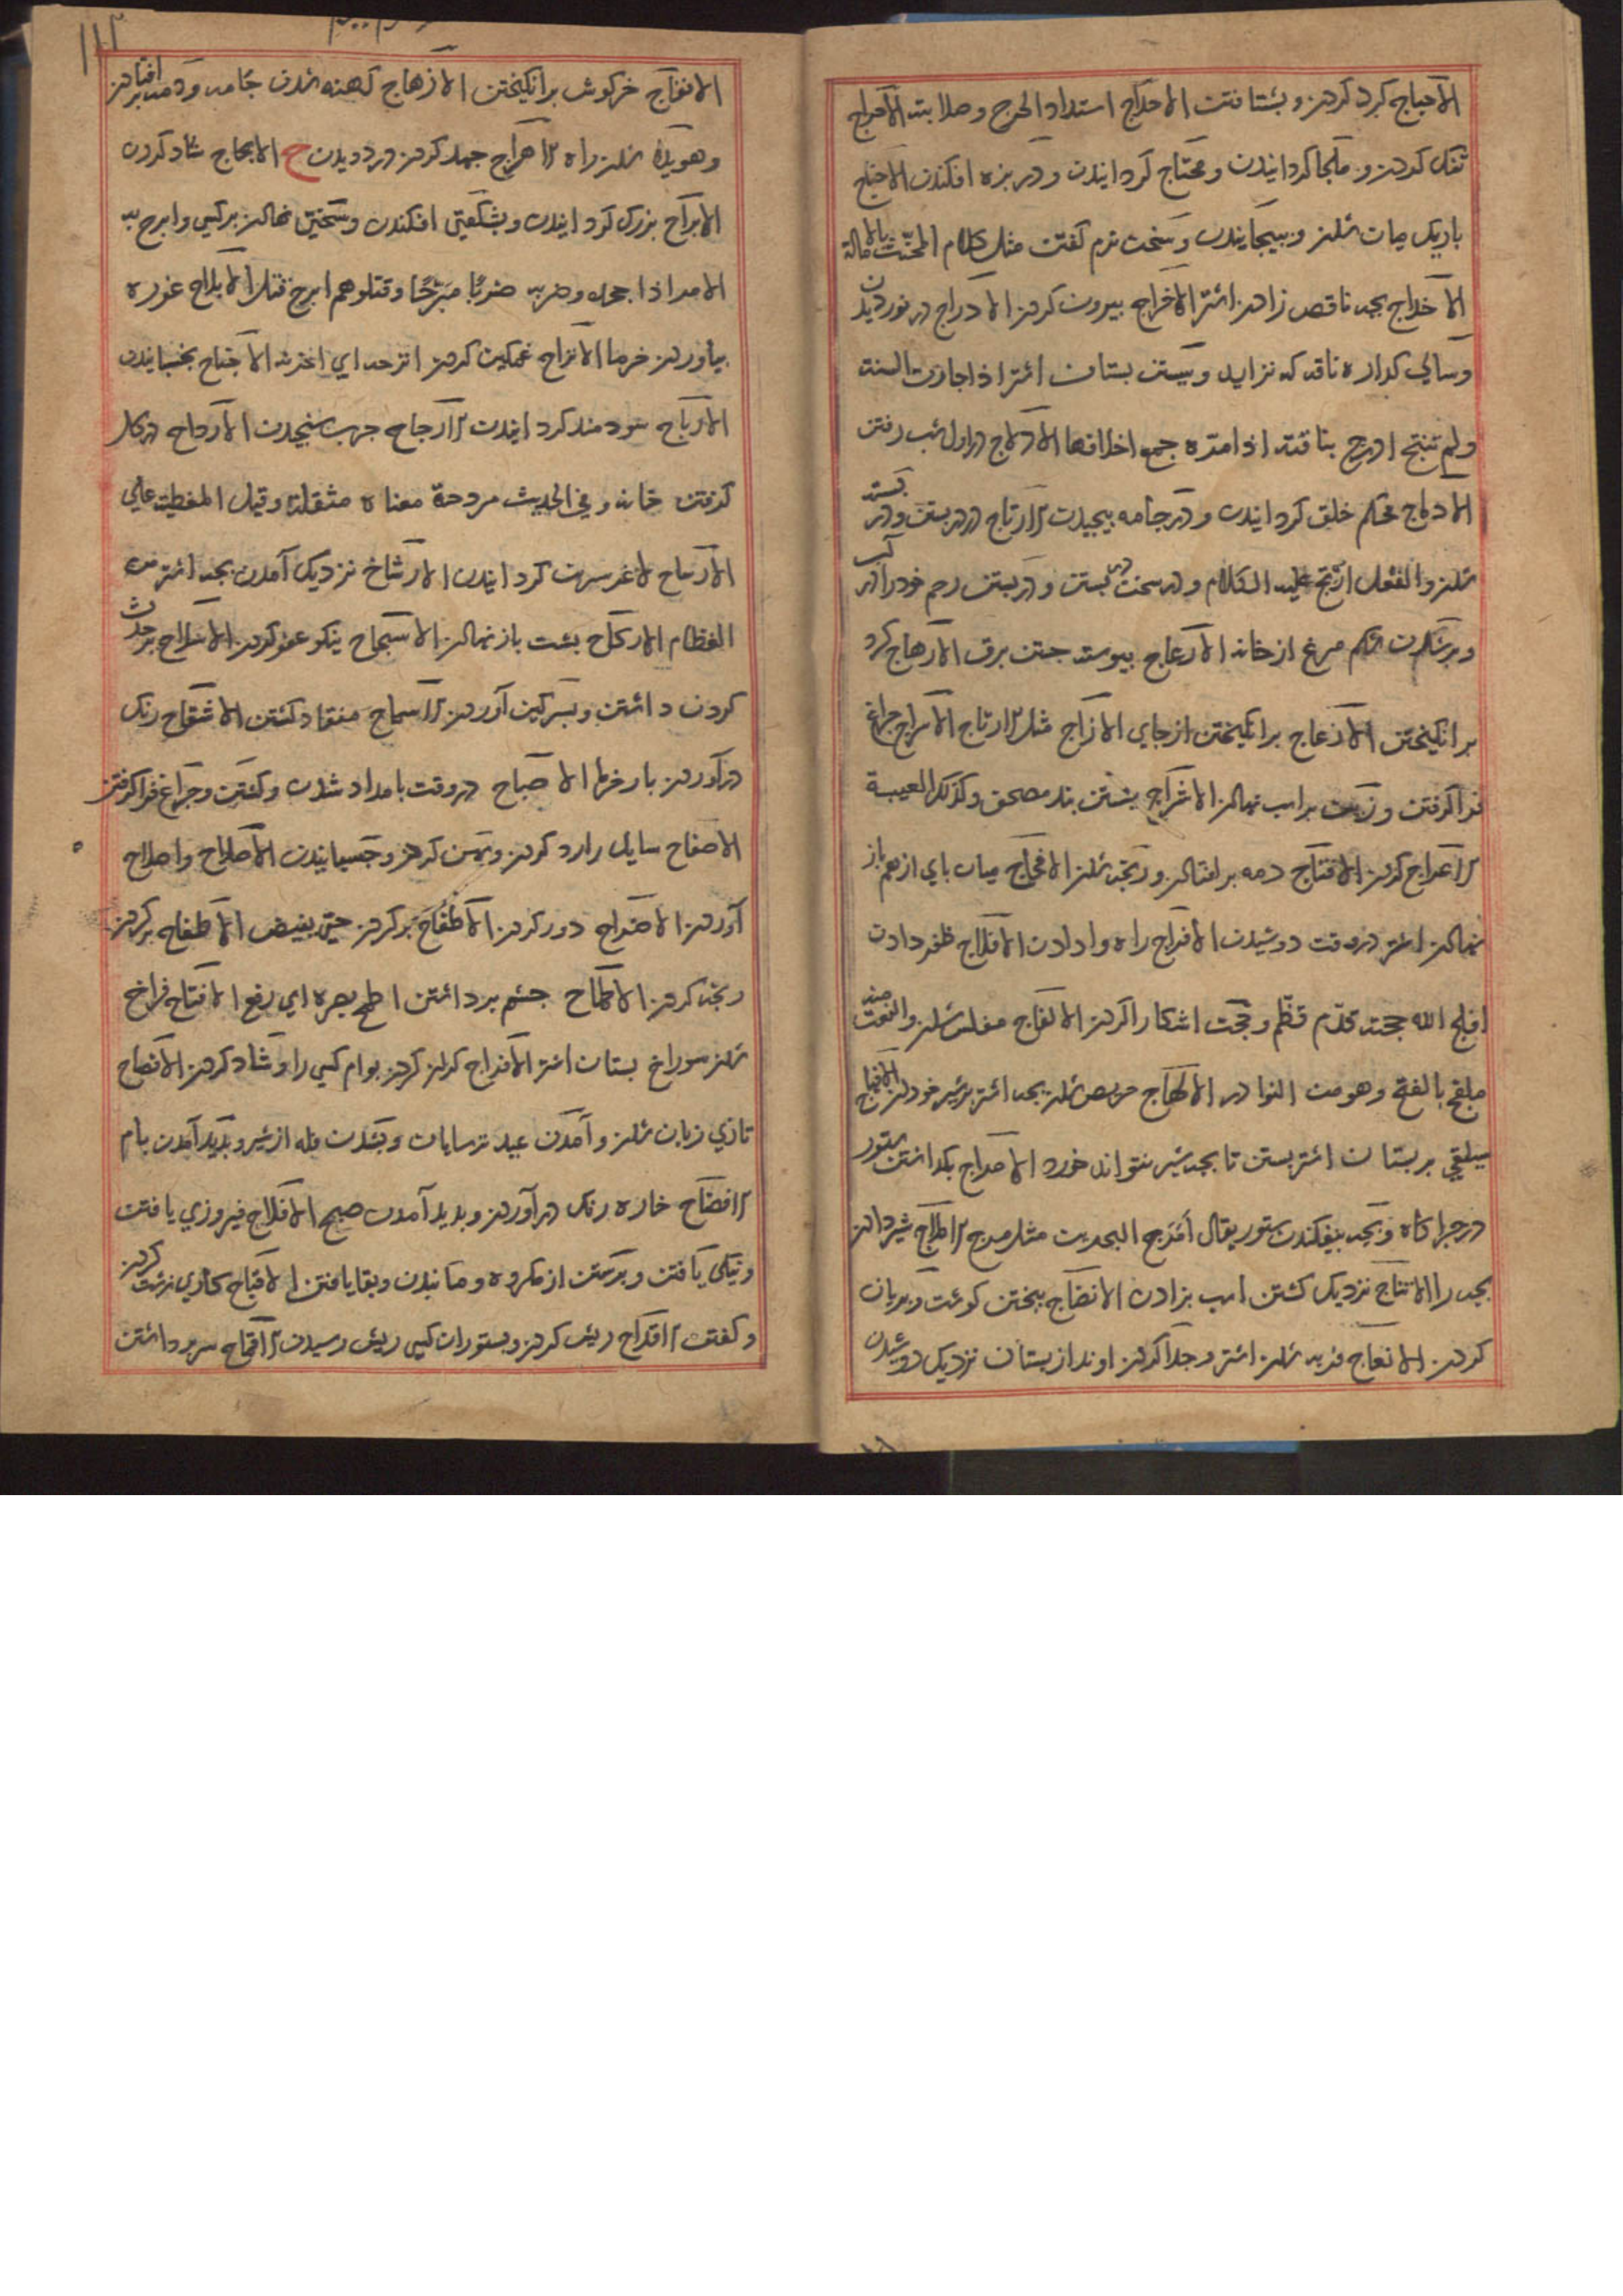 الاحباج کرد کردن و بشتافتن الاحداج استداد الحرج وصلابته الاحراج
تنک کردن و ملجا کردانیدن و محتاج کردانیدن و در بزه افکندن الاخناج
باریک میان شدن و بیجانیدن و سخن نرم کفتن مثل کلام المخنث بالامالة
الاخداج بجه ناقص زادن اشتر الاخراج بیرون کردن الادراج در نوردیدن
وسالی کداره ناقه که نزاید و بستن بستان اشتر اذا جازت السنة
ولم تنتج ادرج بناقته اذا صره جمع اخلافها الادلاج در اول شب رفتن
الادماج محکم خلق کردانیدن و در جامه بیجیدن الارتاج در بستن و در بسته
شدن والفعل ارتج علیه الکلام و در سخن در بستن و در بستن رحم خود را در آب
و بر شدن شکم مرغ از خانه الارعاج بیوسته جستن برق الارهاج کرد
برانکیختن الازعاج برانکیختن از جای الازلاج مثل الارتاج الاسراج جراغ
فراکرفتن و زین براسب نهادن الاشراج بستن بند مصحف وکذلک العیبة
الاعراج کردن الافتاج دمه بر افتادن و رنجه شدن الافحاج میان بای از هم باز
نهادن اشتر در وقت دوشیدن الافراج راه وادادن الافلاج ظفر دادن
افلج الله حجته قدّم قظّم وحجت اشکارا کردن الالفاج مفلس شدن والنعت منه
ملفج بالفتح وهو من النوادر الالهاج حریص شدن بجه اشتر بر شیر خوردن
سیلقی بر بستان اشتر بستن تا بجه شیر نتواند خورد الامراج بکداشتن ستور
در جراکاه و بجه بیفکندن ستور یقال امرج البحرین مثل مرج الاملاج شیر دادن
بجه را الانتاج نزدیک کشتن اسب بزادن الانضاج بختن کوشت و بریان
کردن الانعاج فربه شدن اشتر و جدا کردن اوند از بستان نزدیک دوشیدن
الانفاج خرکوش برانکیختن الانهاج کهنه شدن جامه و دمه بر افتادن
وهویدا شدن راه الاهراج جهد کردن در دویدن ح الابجاح شاد کردن
الابراح بزرک کردانیدن و بشکفتی افکندن و سختی نهادن بر کسی وابرح به
الامر اذا جهده وضربه ضربا مبرحا وقتلوهم ابرح قتل الابلاح غوره
بیاوردن خرما الاتراح غمکین کردن اترحه ای احزنه الاجناح بخسبانیدن
الارباح سودمند کردانیدن الارجاح جرب سنجیدن الارداح در کار
کرفتن خانه وفی الحدیث مردحة معناه مثقلة وقیل المغطیة علی
الارساح لاغر سرین کردانیدن الارشاح نزدیک آمدن بجه اشتر من
الفطام الارکاح بشت باز نهادن الاسجاح نیکو عفو کردن الاسلاح بر حدث
کردن داشتن و بسرکین آوردن الاسماح منقاد کشتن الاشقاح رنک
در آوردن بار خرما الاصباح در وقت بامداد شدن و کشتن و جراغ فراکرفتن
الاصفاح سایل را رد کردن و بهن کردن و جسبانیدن الاصلاح واصلاح
آوردن الاضراح دور کردن الاطفاح بر کردن حتی یفیض الاطفاح بر کردن
رنجه کردن الاطماح جشم برداشتن اطمح بصره ای رفع الافتاح فراخ
شدن سوراخ بستان اشتر الافراح کران کردن بوام کسی را و شاد کردن الافصاح
تازی زبان شدن و آمدن عید ترسایان و بشدن فله از شیر و بدید آمدن بام
الافضاح خاره رنک در آوردن و بدید آمدن صبح الافلاح فیروزی یافتن
و نیکی یافتن و برستن از مکروه و مانیدن و بقا یافتن الاقباح کاری زشت کردن
و کفتن الاقداح ریش کردن و بستوران کسی ریش رسیدن الاقماح سر برداشتن